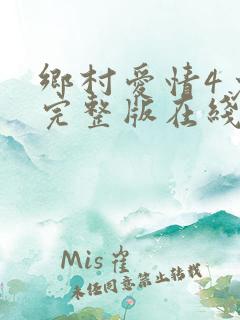 鄉村愛情4
完整版在綫
Mis崔
未任同意禁止转载